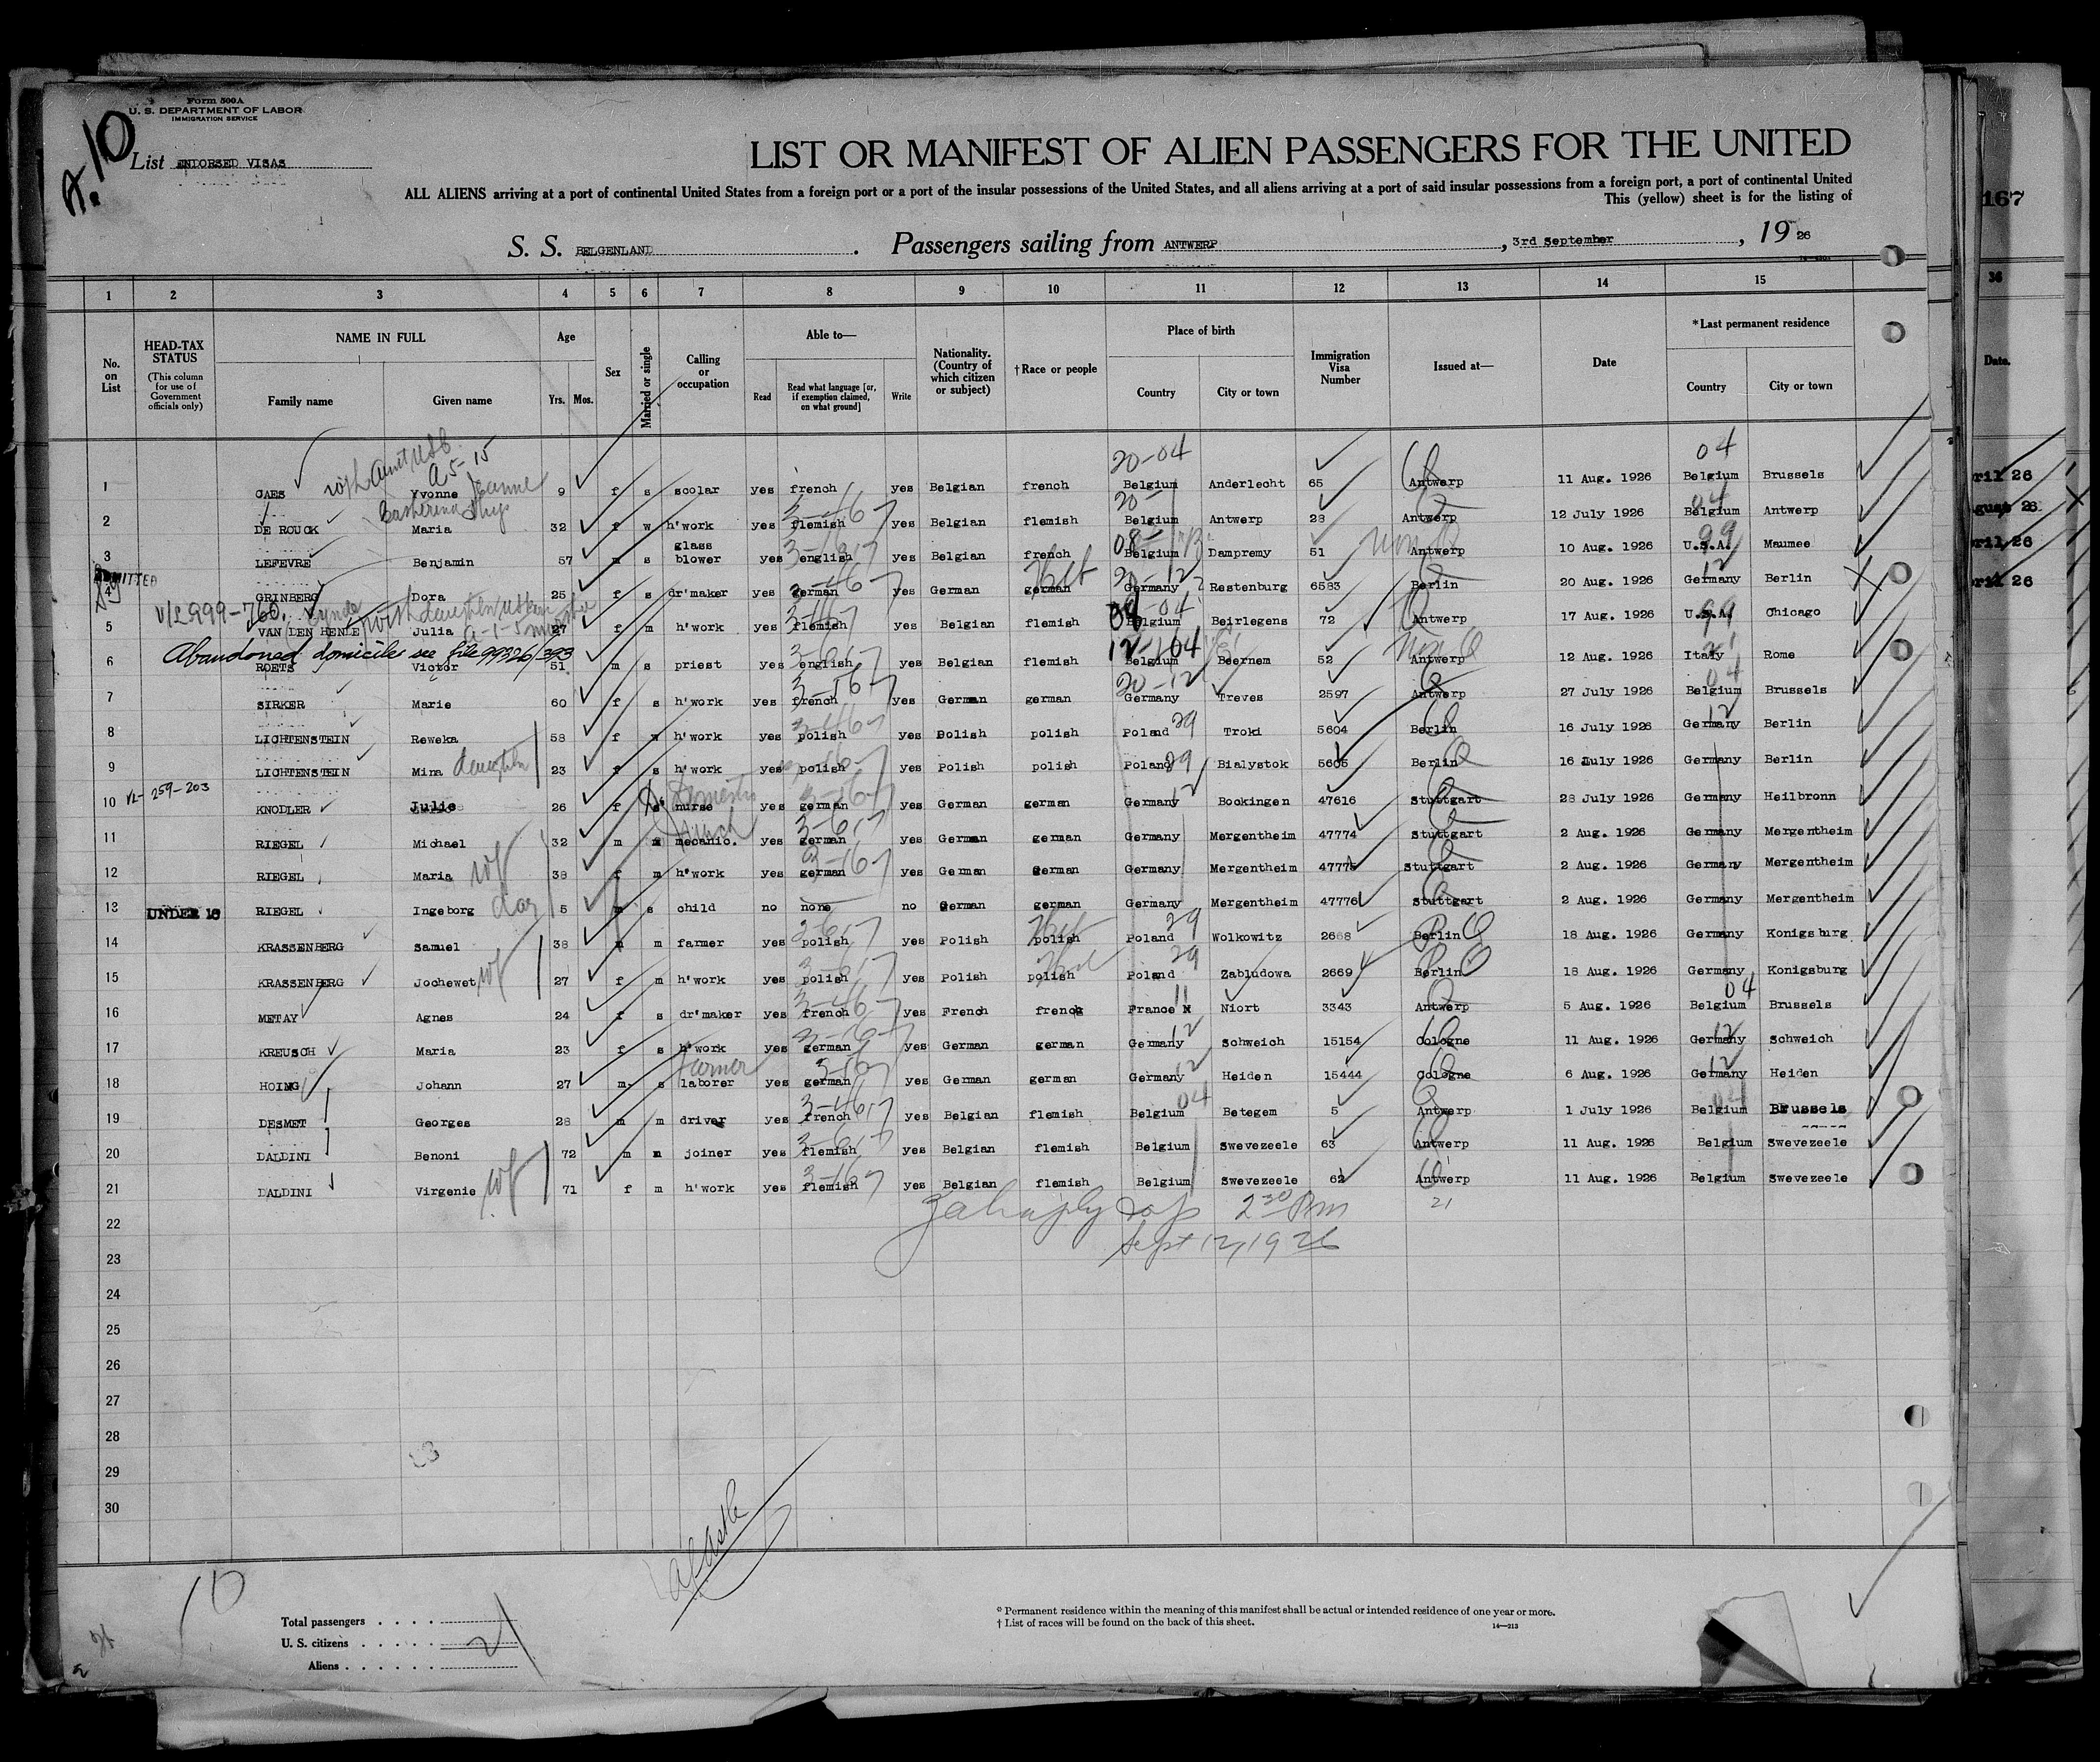 Form 500A
U. S. DEPARTMENT OF LABOR
IMMIGRATION SERVICE
A. 10
List ENDORSED VISAS
LIST OR MANIFEST OF ALIEN PASSENGERS FOR THE UNITED
ALL ALIENS arriving at a port of continental United States from a foreign port or a port of the insular possessions of the United States, and all aliens arriving at a port of said insular possessions from a foreign port, a port of continental United
This (yellow) sheet is for the listing of
167
S. S. BELGENLAND. Passengers sailing from ANTWERP, 3rd September, 19 26
1 2 3 4 5 6 7 8 9 10 11 12 13 14 15 36
No. on List
HEAD-TAX STATUS (This column for use of Government officials only)
NAME IN FULL Family name Given name
Age Yrs. Mos.
Sex
Married or single
Calling or occupation
Able to— Read Read what language [or, if exemption claimed, on what ground] Write
Nationality. (Country of which citizen or subject)
† Race or people
Place of birth Country City or town
Immigration Visa Number
Issued at—
Date
*Last permanent residence Country City or town
Date.
with Aunt USC A5-15
20-04 04
1 CAES Yvonne Jeanne 9 f s scolar yes french yes Belgian french Belgium Anderlecht 65 Antwerp 11 Aug. 1926 Belgium Brussels
2 DE ROUCK Maria 32 f w h'work yes flemish yes Belgian flemish Belgium Antwerp 28 Antwerp 12 July 1926 Belgium Antwerp
3 LEFEVRE Benjamin 57 m s glass blower yes english yes Belgian french Belgium Dampremy 51 Antwerp 10 Aug. 1926 U.S.A. Maumee
ADMITTED
4 GRINBERG Dora 25 f s dr'maker yes german yes German german Germany Restenburg 6583 Berlin 20 Aug. 1926 Germany Berlin
V/L 999-760.
5 VAN DEN HENDE Julia 27 f m h'work yes flemish yes Belgian flemish Belgium Beirlegens 72 Antwerp 17 Aug. 1926 U.S.A. Chicago
Abandoned domicile see file 99326/393
6 ROETS Victor 51 m s priest yes english yes Belgian flemish Belgium Beernem 52 Antwerp 12 Aug. 1926 Italy Rome
7 SIRKER Marie 60 f s h'work yes french yes German german Germany Treves 2597 Antwerp 27 July 1926 Belgium Brussels
8 LICHTENSTEIN Reweka 58 f w h'work yes polish yes Polish polish Poland 29 Troki 5604 Berlin 16 July 1926 Germany Berlin
9 LICHTENSTEIN Mina daughter 23 f s h'work yes polish yes Polish polish Poland 29 Bialystok 5605 Berlin 16 July 1926 Germany Berlin
VL-259-203
10 KNODLER Julie 26 f s nurse Domestic yes german yes German german Germany Bockingen 47616 Stuttgart 28 July 1926 Germany Heilbronn
11 RIEGEL Michael 32 m m mecanic. yes german yes German german Germany Mergentheim 47774 Stuttgart 2 Aug. 1926 Germany Mergentheim
12 RIEGEL Maria wf 38 f m h'work yes german yes German german Germany Mergentheim 47775 Stuttgart 2 Aug. 1926 Germany Mergentheim
13 UNDER 16 RIEGEL Ingeborg 5 s child no none no German german Germany Mergentheim 47776 Stuttgart 2 Aug. 1926 Germany Mergentheim
14 KRASSENBERG Samuel 38 m m farmer yes polish yes Polish polish Poland 29 Wolkowitz 2668 Berlin 18 Aug. 1926 Germany Konigsburg
15 KRASSENBERG Jochewet wf 27 f m h'work yes polish yes Polish polish Poland 29 Zabludowa 2669 Berlin 18 Aug. 1926 Germany Konigsburg
16 METAY Agnes 24 f s dr'maker yes french yes French french France 11 Niort 3343 Antwerp 5 Aug. 1926 Belgium 04 Brussels
17 KREUSCH Maria 23 f s h'work yes german yes German german Germany 12 Schweich 15154 Cologne 11 Aug. 1926 Germany 12 Schweich
18 HOING Johann 27 m s laborer farmer yes german yes German german Germany 12 Heiden 15444 Cologne 6 Aug. 1926 Germany 12 Heiden
19 DESMET Georges 28 m m driver yes french yes Belgian flemish Belgium 04 Betegem 5 Antwerp 1 July 1926 Belgium Brussels
20 DALDINI Benoni 72 m m joiner yes flemish yes Belgian flemish Belgium Swevezeele 63 Antwerp 11 Aug. 1926 Belgium Swevezeele
21 DALDINI Virgenie wf 71 f m h'work yes flemish yes Belgian flemish Belgium Swevezeele 62 Antwerp 11 Aug. 1926 Belgium Swevezeele
2 30 Pm 21
22
Sept 12, 1926
23
24
25
26
27
28
29
30
10
Total passengers
U. S. citizens
21
Aliens
* Permanent residence within the meaning of this manifest shall be actual or intended residence of one year or more.
† List of races will be found on the back of this sheet.
14—213